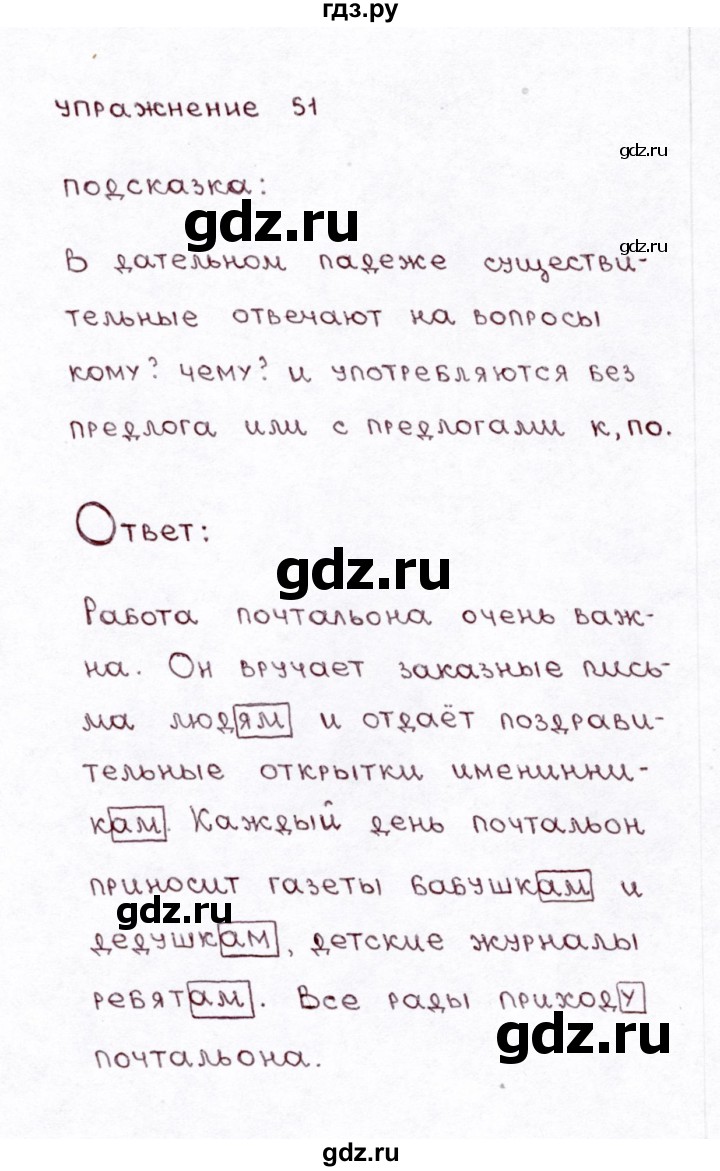 гдз.ру
упражнение 51
gdz.ru
подсказка:
gdz.ru
gdz.ru
В дательном падеже существи-
тельные отвечают на вопросы
кому? чему? и употребляются без
предлога или с предлогами к, по.
Ответ:
gdz.ru
Работа почтальона очень важ-
на. Он вручает заказные пись-
ма людям и отдаёт поздрави-
тельные открытки именинни-
кам. Каждый день почтальон
приносит газеты бабушкам и
gdz.ru
дедушкам, детские журналы
ребятам. Все рады приходу
gdz.ru
почтальона.
gdz.ru